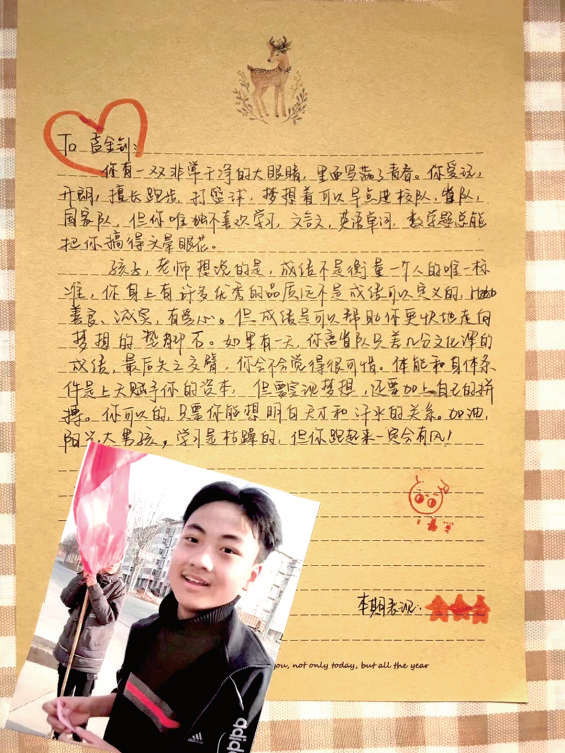 To 孟金钊:
你有一双非常干净的大眼睛，里面写满了青春。你爱说，
开朗，擅长跑步、打篮球，梦想着可以早点进校队、省队、
国家队，但你唯独不喜欢学习，文言文，英语单词，数学题总能
把你搞得头晕眼花。
孩子，老师想说的是，成绩不是衡量一个人的唯一标
准，你身上有许多优秀的品质远不是成绩可以定义的，比如
善良、诚实，有爱心。但成绩是可以帮助你更快地走向
梦想的垫脚石。如果有一天，你离省队只差几分文化课的
成绩，最后失之交臂，你会不会觉得很可惜。体能和身体条
件是上天赋予你的资本，但要实现梦想，还要加上自己的拼
搏。你可以的，只要你能想明白天才和汗水的关系。加油，
阳光大男孩，学习是枯燥的，但你跑起来一定会有风！
本期表现：
you, not only today, but all the year
adidas